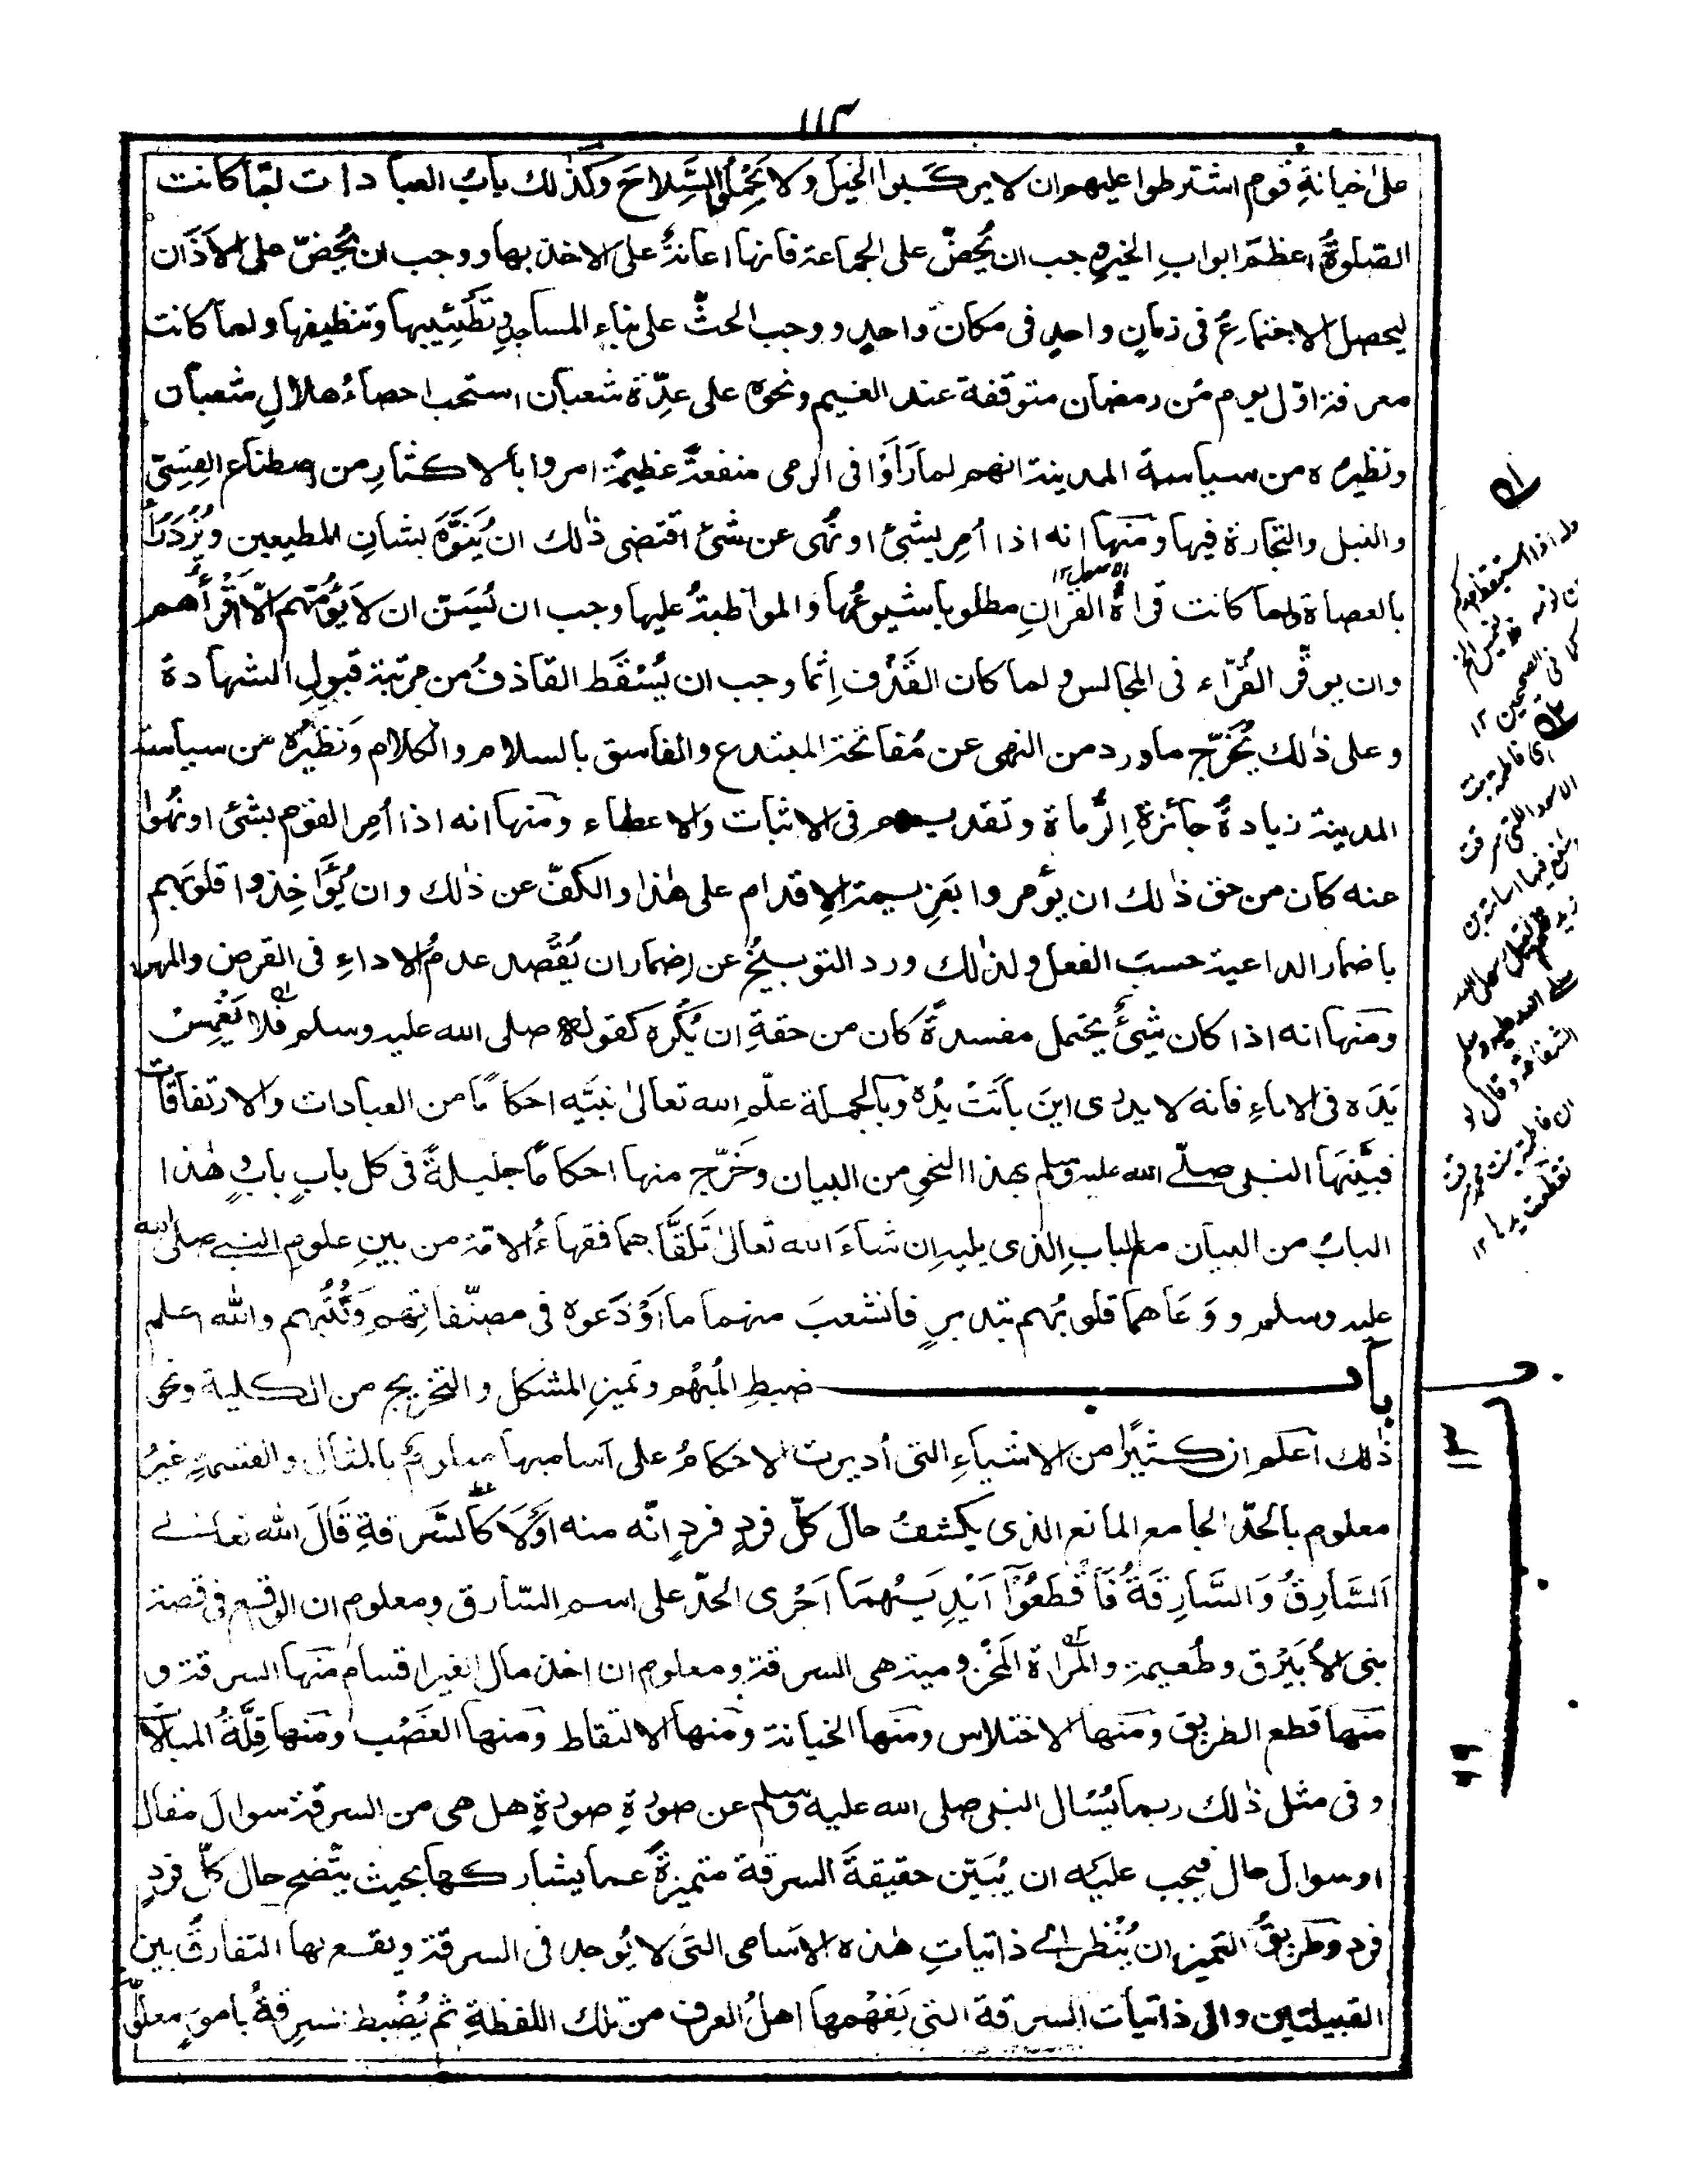 ١١٢
على خيانةِ قوم اشترطوا عليهم ان لا يركبوا الخيل ولا يَحْمِلُوا السِّلاحَ وكذٰلك بابُ العبادات لمّا كانت
الصّلوةُ اعظمَ ابوابِ الخيرِ وجب ان يُحَضّ على الجماعة فانها اعانةٌ على الاخذ بها ووجب ان يُحَضّ على الاَذَان
ليحصل الاجتماعُ فى زمانٍ واحدٍ فى مكان واحدٍ ووجب الحثّ على بناء المساجد وتَطْيِيبِها وتنظيفها ولما كانت
معرفة اوّل يوم من رمضان متوقفة عند الغيم ونحوه على عِدّة شعبان استحب احصاءُ هلالِ شعبان
ونظيرُه من سياسة المدينة انهم لما رَأَوْا فى الرمى منفعةً عظيمةً امروا بالاكثارِ من اصطناع القِسِىّ
والنبل والتجارة فيها ومنها انه اذا اُمِر بشئ او نُهى عن شئ اقتضى ذٰلك ان يُنَوَّهَ بشانِ المطيعين ويُزْدَرَأَ
بالعصاة ولما كانت قراءةُ القرانِ مطلوبا شيوعُها والمواظبةُ عليها وجب ان يُسَنّ ان لا يَؤُمّهم الّا اَقْرَأُهم
وان يوقّر القُرّاء فى المجالس ولما كان القَذْف اِثما وجب ان يُسْقَط القاذفُ من مرتبة قبولِ الشهادة
وعلى ذٰلك يُخَرّج ما ورد من النهى عن مُفاتحة المبتدع والفاسق بالسلام والكلام ونظيرُه من سياسة
المدينة زيادةُ جائزةِ الرُّماة وتقديمهم فى الاثبات والاعطاء ومنها انه اذا اُمِر القوم بشئ او نُهُوا
عنه كان من حق ذٰلك ان يؤمروا بعَزِيمة الاقدام على هٰذا والكفّ عن ذٰلك وان يُؤَاخِذوا قلوبَهم
باضمار الداعية حسبَ الفعل ولذٰلك ورد التوبيخُ عن اِضمار ان يُقْصد عدمُ الاداءِ فى القرض والمهر
ومنها انه اذا كان شَيْئٌ يحتمل مفسدةً كان من حقه ان يُكْرَه كقوله صلى الله عليه وسلم فلا يَغْمِسْ
يَدَه فى الاناءِ فانه لا يدرى اينَ باتَتْ يدُه وبالجملة علّم الله تعالىٰ نبيَّه احكامًا من العبادات والارتفاقات
فبيّنَها النبى صلّے الله عليه وسلم بهذا النحوِ من البيان وخَرّج منها احكامًا جليلةً فى كل بابٍ بابٍ وهٰذا
البابُ من البيان مع البابِ الذى يليه ان شاءَ الله تعالىٰ تَلقَّاهما فقهاءُ الامّة من بينِ علوم النبے صلى الله
عليه وسلم ووَعَاهما قلوبُهم بتدبرٍ فانشعبَ منهما ما اَوْدَعوه فى مصنّفاتهم وكُتُبهم والله اعلم
باب ضبطِ المُبْهم وتميزِ المشكل والتخريج من الكلية ونحو
ذٰلك اعلم ان كثيرًا من الاشياءِ التى اُديرت الاحكامُ على اسامیها معلومٌ بالمثال والقسمةِ غيرُ
معلوم بالحدّ الجامع المانع الذى يكشفُ حالَ كلّ فردٍ فردٍ انّه منه اَوْلَا كالسَّرِقةِ قَالَ الله تعالىٰے
اَلسَّارِقُ وَالسَّارِقَةُ فَاقْطَعُوْٓا اَيْدِيَهُمَا اَجْرٰى الحدّ على اسم السّارق ومعلوم ان الواقع فى قصة
بنى الاُبَيْرِق وطُعيمة والمَرأة المَخْزومية هى السرقة ومعلوم ان اخذ مال الغير اقسام منها السرقة و
منها قطع الطريق ومنها الاختلاس ومنها الخيانة ومنها الالتقاط ومنها الغَصْب ومنها قِلّةُ المبالاة
وفى مثل ذٰلك ربما يُسْال النبى صلى الله عليه وسلم عن صورةٍ صورةٍ هل هى من السرقة سوالَ مقال
اوسوالَ حال فيجب عليه ان يُبَيّن حقيقةَ السرقة متميزةً عما يشاركها بحيث يتّضح حال كلّ فردٍ
فرد وطريقُ التميز ان يُنْظر الے ذاتياتِ هٰذه الاَسامى التى لا يُوجد فى السرقة ويقع بها التفارقُ بين
القبيلتين والى ذاتيات السرقة التى يَفْهمها اهلُ العرف من تلك اللفظةِ ثم يُضْبط السرقةُ بامورٍ معلو
اى فاطمة بنت
الاسود اللتى سرقت
وشفع فيها اسامة بن
صلے الله عليه وسلم
الشفاعة وقال لو
ان فاطمة بنت محمد سرقت
لقطعت يدها ١٢
١٣
١١
٩٩